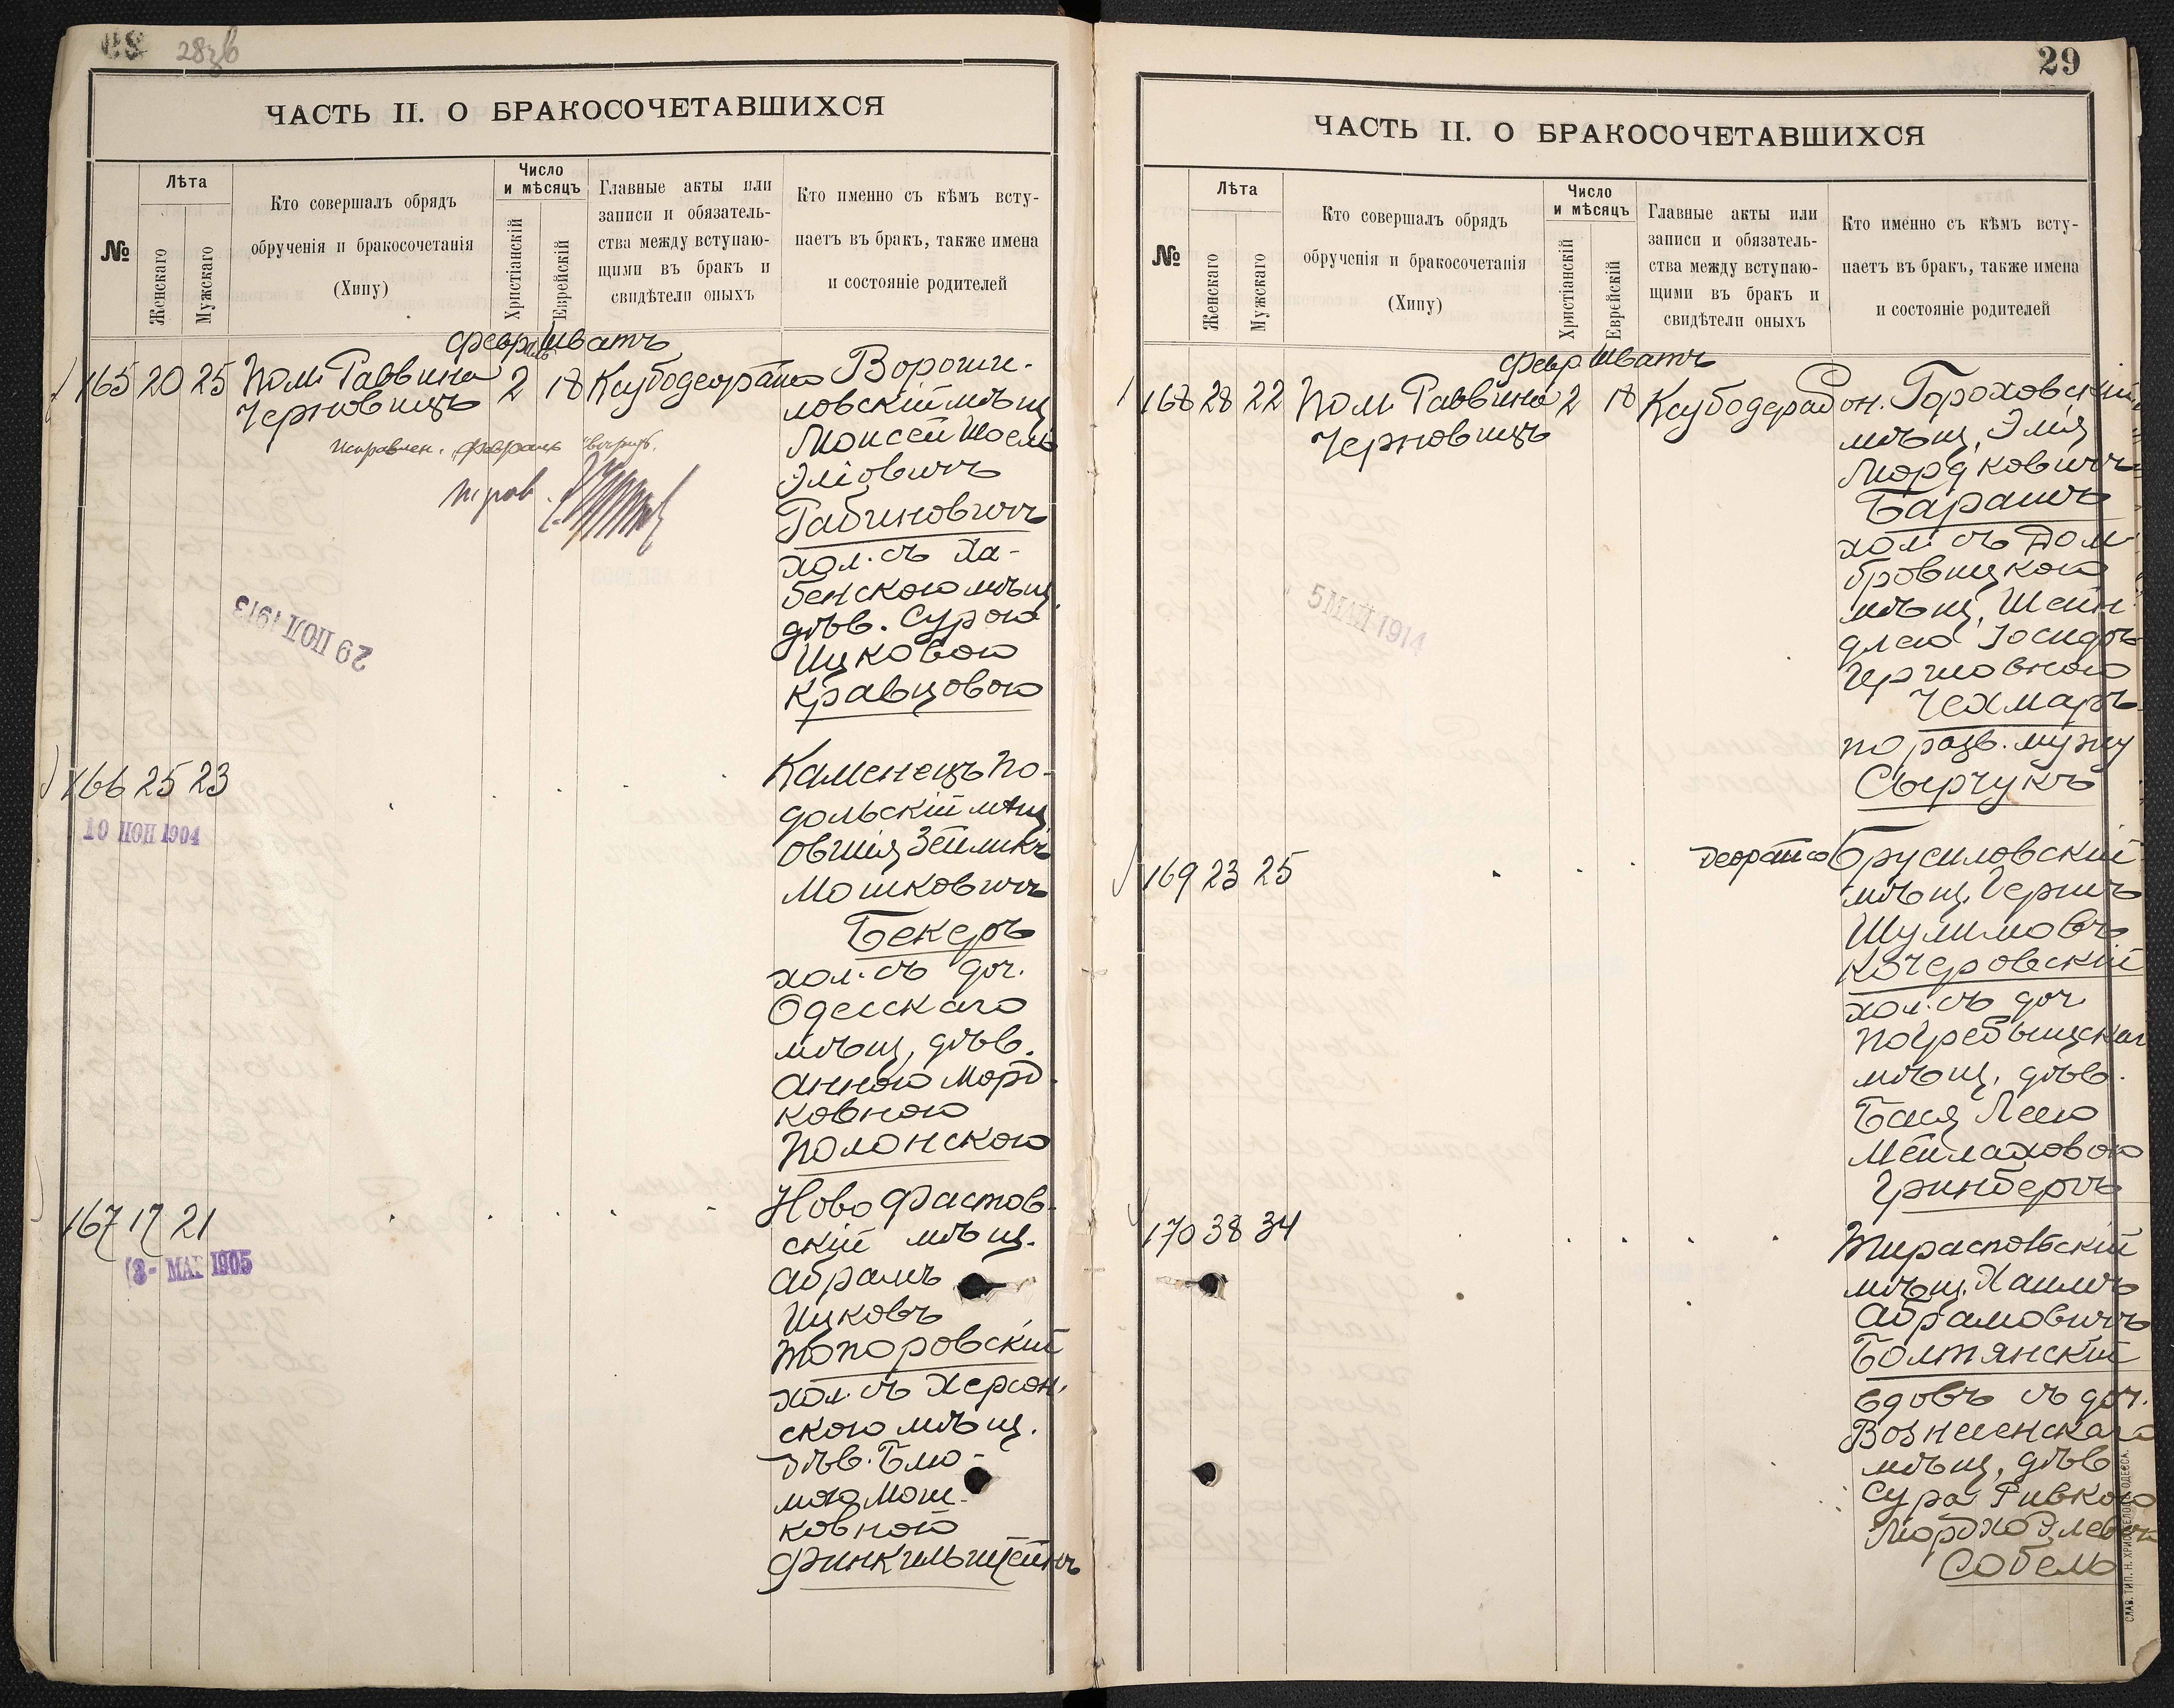 28зв
ЧАСТЬ II. О БРАКОСОЧЕТАВШИХСЯ
№
Лѣта
Женскаго
Мужскаго
Кто совершалъ обрядъ
обрученія и бракосочетанія
(Хипу)
Число
и мѣсяцъ
Христіанскій
Еврейскій
Главные акты или
записи и обязатель-
ства между вступаю-
щими въ бракъ и
свидѣтели оныхъ
Кто именно съ кѣмъ всту-
паетъ въ бракъ, также имена
и состояніе родителей
Февраль Шватъ
165 20 25 Пом. Раввина 2 18 Вороші-
Черновицъ
ловскій мѣщ
Моисей Шоель
Эліовичъ
Рабиновичъ
хол. съ Ха-
бенскою мѣщ.
дѣв. Сурою
Ицковою
Кравцовою
29 ІЮЛ 1913
166 25 23 Каменецъ По-
дольскій мѣщ
Овшія Зейликъ
Мошковичъ
Бекеръ
хол. съ доч.
Одесскаго
мѣщ, дѣв.
Анною Морд-
ковною
Полонскою
10 ІЮН 1904
167 17 21 Ново Фастов-
скій мѣщ.
Абрамъ
Ицковъ
Топоровскій
хол. съ Херсон-
скою мѣщ.
дѣв. Блю-
мою Мош-
ковной
Финкильштейнъ
3- МАР 1905
29
ЧАСТЬ II. О БРАКОСОЧЕТАВШИХСЯ
№
Лѣта
Женскаго
Мужскаго
Кто совершалъ обрядъ
обрученія и бракосочетанія
(Хипу)
Число
и мѣсяцъ
Христіанскій
Еврейскій
Главные акты или
записи и обязатель-
ства между вступаю-
щими въ бракъ и
свидѣтели оныхъ
Кто именно съ кѣмъ всту-
паетъ въ бракъ, также имена
и состояніе родителей
Февр Шватъ
168 28 22 Пом. Раввина 2 18 Гороховскій
Черновицъ
мѣщ, Элія
Мордковичъ
Барашъ
хол. съ Дом-
бровицкою
мѣщ, Шейн-
длею Іосифъ
Гершовною
Чехмаръ
по разв. мужу
Сырчукъ
5 МАЙ 1914
169 23 25 Брусиловскій
мѣщ. Гершъ
Шулимовъ
Кочеровскій
хол. съ доч.
Погребыщскаг
мѣщ. дѣв.
Бася Леею
Мейлаховою
Гринбергъ
170 38 34 Тираспольскій
мѣщ. Хаимъ
Абрамовичъ
Болтянскій
вдовъ съ доч.
Вознесенскаго
мѣщ, дѣв
Сура Ривкою
Собель
СЛАВ. ТИП. Н. ХРИСОГЕЛОСЪ, ОДЕССА.